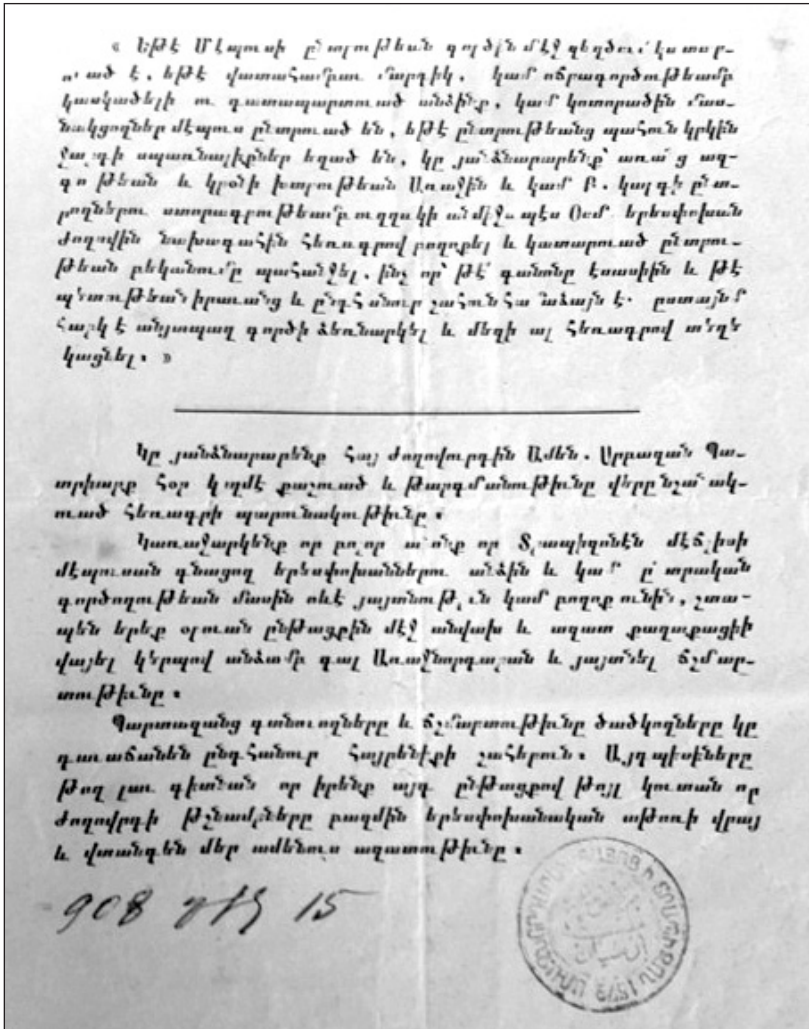 « Եթէ Մէպուսի ընտրութեան գործին մէջ զեղծում կատար-
ուած է, եթէ վատահամբաւ մարդիկ, կամ ոճրագործութեամբ
կասկածելի ու դատապարտուած անձինք, կամ կոտորածին մաս-
նակցողներ մէպուս ընտրուած են, եթէ ընտրութեանց պահուն կրկին
ջարդի սպառնալիքներ եղած են, կը յանձնարարենք՝ առանց ազ-
գութեան և կրօնի խտրութեան Առաջին և կամ Բ. կարգի ընտ-
րողներու ստորագրութեամբ ուղղակի անմիջապէս Օսմ. երեսփոխան
ժողովին նախագահին հեռագրով բողոքել և կատարուած ընտրու-
թեան բեկանումը պահանջել, ինչ որ՝ թէ՛ գանոնը էսասիին և թէ
պետութեան իրաւանց և ընդհանուր շահուն համաձայն է. ըստայնմ
հարկ է անյապաղ գործի ձեռնարկել և մեզի ալ հեռագրով տեղեկ
կացնել. »
Կը յանձնարարենք Հայ ժողովուրդին Ամեն. Սրբազան Պա-
տրիարք Հօր կողմէ քաշուած և թարգմանութիւնը վերը նշանակ-
ուած հեռագրի պարունակութիւնը.
Կառաջարկենք որ բոլոր անոնք որ Տրապիզոնէն մէճլիսի
մէպուսան գնացող երեսփոխաններու անձին և կամ ընտրական
գործողութեան մասին ոևէ յայտնութիւն կամ բողոք ունին, շտա-
պեն երեք օրուան ընթացքին մէջ անվախ և ազատ քաղաքացիի
վայել կերպով անձամբ գալ Առաջնորդարան և յայտնել ճշմար-
տութիւնը.
Պարտազանց գտնուողները և ճշմարտութիւնը ծածկողները կը
դաւաճանեն ընդհանուր Հայրենիքի շահերուն. Այդպիսիները
թող լաւ գիտնան որ իրենք այդ ընթացքով թոյլ կուտան որ
ժողովրդի թշնամիները բազմին երեսփոխանական աթոռի վրայ
և վտանգեն մեր ամենուս ազատութիւնը.
908 15